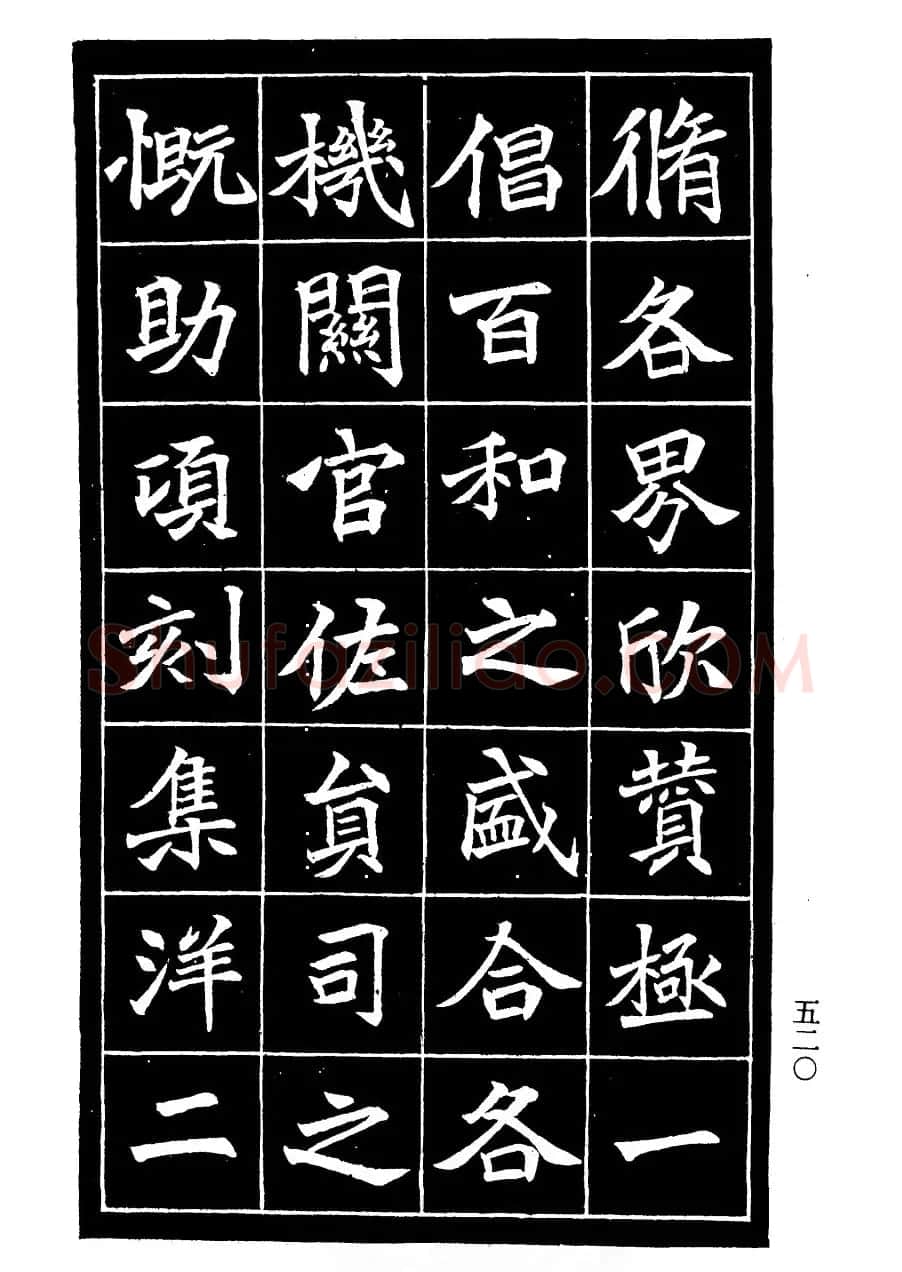 脩各界欣贊極一
倡百和之盛合各
機關官佐員司之
慨助項刻集洋二
五二〇
Shufaziliao.COM